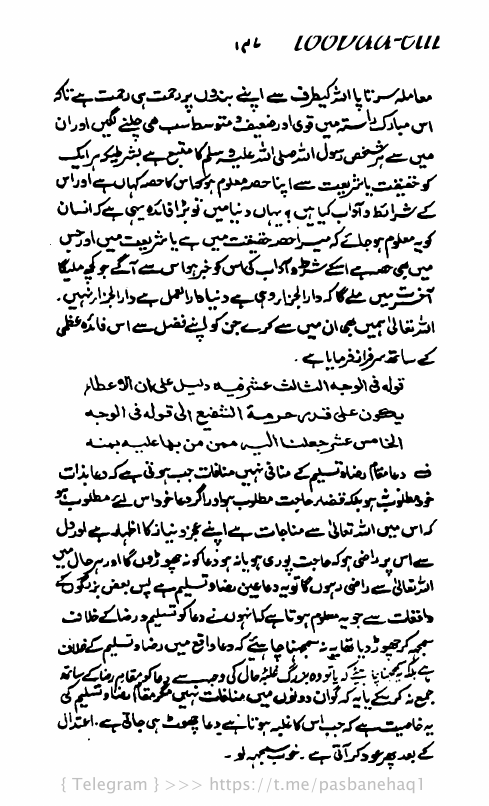 ۱۳۷
معاملہ سرتاپا اللہ کیطرف سے اپنے بندوں پر رحمت ہی رحمت ہے تاکہ
اس مبارک راستہ میں قوی اور ضعیف و متوسط سب ہی چلنے لگیں اور ان
میں سے ہر شخص رسول اللہ صلی اللہ علیہ وسلم کا متبع ہے بشرطیکہ ہر ایک
کو حقیقت یا شریعت سے اپنا حصہ معلوم ہو کہ اس کا حصہ کہاں ہے اور اس
کے شرائط و آداب کیا ہیں، یہاں دنیا میں تو بڑا فائدہ یہی ہے کہ انسان
کو یہ معلوم ہو جائے کہ میرا حصہ حقیقت میں ہے یا شریعت میں اور جس
میں بھی حصہ ہے اسکے شرط و آداب کی اس کو خبر ہو اس سے آگے جو کچھ ملیگا
آخرت میں ملے گا کہ دار الجزا وہی ہے دنیا دار العمل ہے دار الجزا نہیں۔
اللہ تعالیٰ ہمیں بھی ان میں سے کرے جن کو اپنے فضل سے اس فائدہ عظمیٰ
کے ساتھ سرفراز فرمایا ہے۔
قولہ فی الوجہ الثالث عشر فیہ دلیل علی ان الاعطار
یکون علی قدر حرمۃ الشفیع الی قولہ فی الوجہ
الخامس عشر جعلنا اللہ ممن من بہا علیہ بمنہ
ف دعا مقام رضا و تسلیم کے منافی نہیں منافات جب ہوتی ہے کہ دعا بذات
خود مطلوب نہ ہو بلکہ قضاء حاجت مطلوب ہو اور اگر دعا خود اس لئے مطلوب ہو
کہ اس میں اللہ تعالیٰ سے مناجات ہے اپنے عجز و نیاز کا اظہار ہے اور دل
سے اس پر راضی ہو کہ حاجت پوری ہو یا نہ ہو دعا کو نہ چھوڑوں گا اور ہر حال میں
اللہ تعالیٰ سے راضی رہوں گا تو یہ دعا عین رضا و تسلیم ہے پس بعض بزرگوں کے
واقعات سے جو یہ معلوم ہوتا ہے کہ انہوں نے دعا کو تسلیم و رضا کے خلاف
سمجھ کر چھوڑ دیا تھا یہ نہ سمجھنا چاہیئے کہ دعا واقع میں رضا و تسلیم کے خلاف
ہے بلکہ سمجھنا چاہئے کہ یا تو وہ بزرگ غلبۂ حال کی وجہ سے دعا کو مقام رضا کے ساتھ
جمع نہ کر سکے یا یہ کہ گو ان دونوں میں منافات نہیں مگر مقام رضا و تسلیم کی
یہ خاصیت ہے کہ جب اس کا غلبہ ہوتا ہے دعا چھوٹ ہی جاتی ہے۔ اعتدال
کے بعد پھر عود کر آتی ہے۔ خوب سمجھ لو۔
{ Telegram } >>> https://t.me/pasbanehaq1